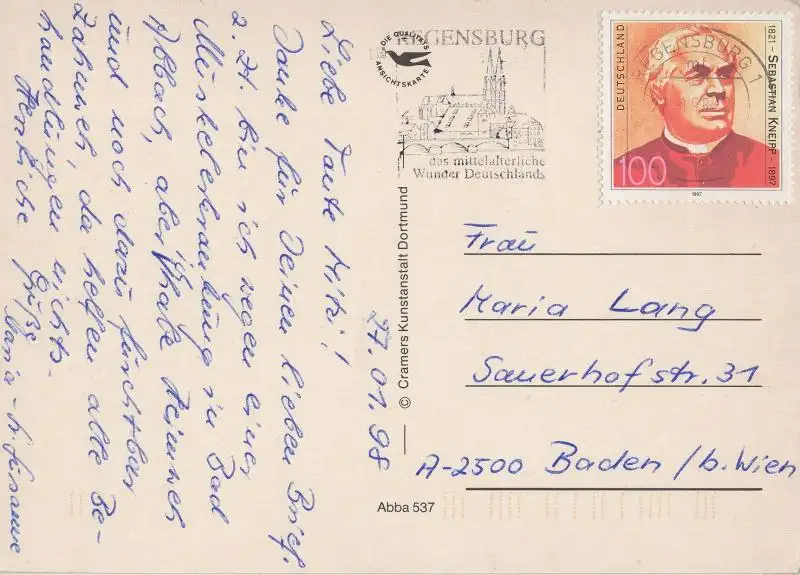 Liebe Tante Mitzi!
Danke für Deinen lieben Brief.
Z. Zt. bin ich wegen einer
Muskelerkrankung in Bad
Abbach, aber ich habe Heimweh
und noch dazu furchtbar
Zahnweh, da helfen alle Be-
handlungen nichts.
Herzliche Grüße
Maria
27.01.98
DIE QUALITÄTS
ANSICHTSKARTE
REGENSBURG
das mittelalterliche
Wunder Deutschlands
REGENSBURG 1
DEUTSCHLAND
1821 – SEBASTIAN KNEIPP – 1897
100
1997
© Cramers Kunstanstalt Dortmund
Frau
Maria Lang
Sauerhofstr. 31
A-2500 Baden / b. Wien
Abba 537